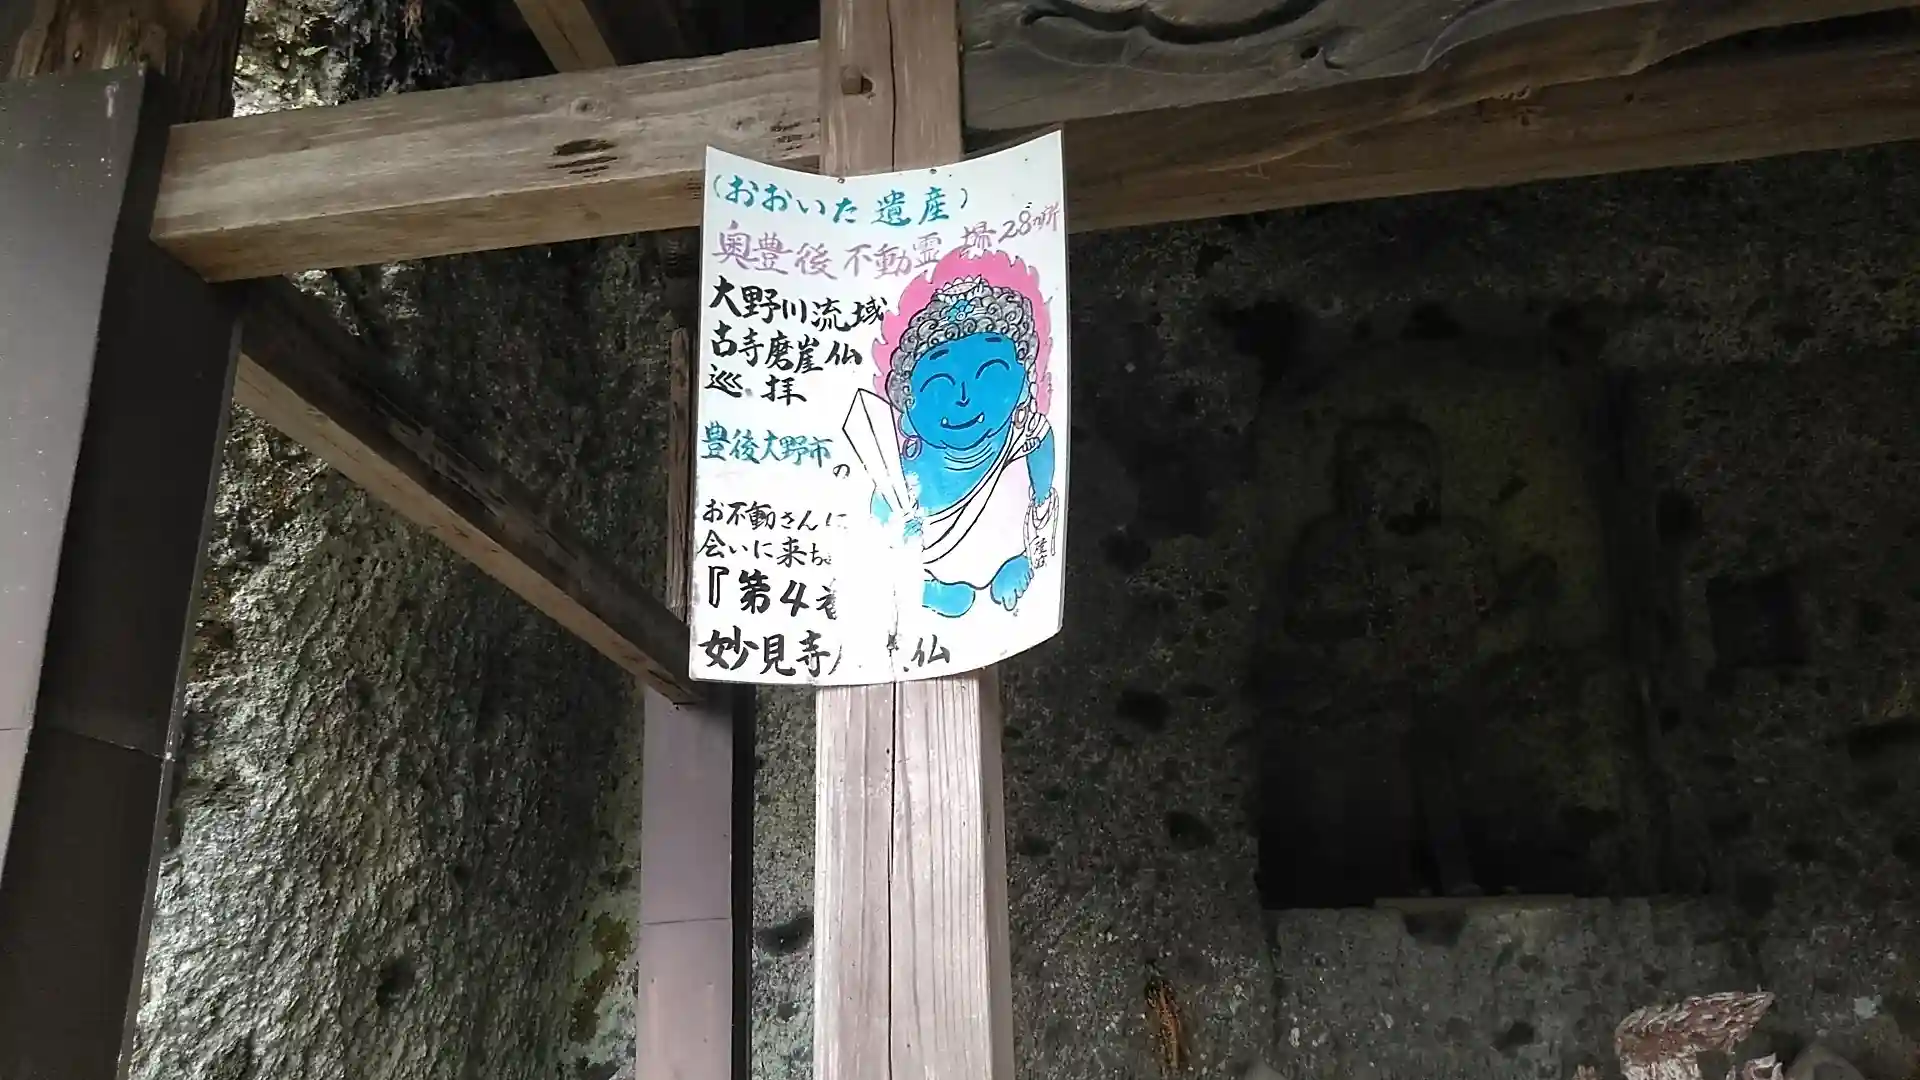 (おおいた遺産)
奥豊後不動霊場28ヶ所
大野川流域
古寺磨崖仏
巡拝
豊後大野市の
お不動さんに
会いに来ち
『第4
妙見寺
仏